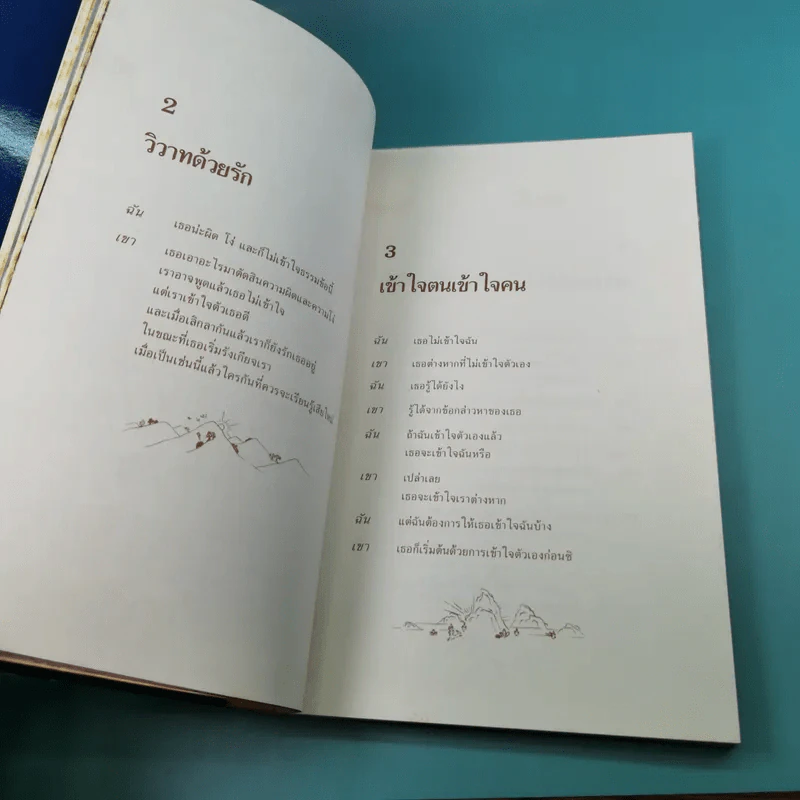 2
วิวาทด้วยรัก
ฉัน เธอน่ะผิด โง่ และก็ไม่เข้าใจธรรมข้อนี้
เขา เธอเอาอะไรมาตัดสินความผิดและความโง่
เราอาจพูดแล้วเธอไม่เข้าใจ
แต่เราเข้าใจตัวเธอดี
และเมื่อเลิกลากันแล้วเราก็ยังรักเธออยู่
ในขณะที่เธอเริ่มรังเกียจเรา
เมื่อเป็นเช่นนี้แล้วใครกันที่ควรจะเรียนรู้เสียใหม่
3
เข้าใจตนเข้าใจคน
ฉัน เธอไม่เข้าใจฉัน
เขา เธอต่างหากที่ไม่เข้าใจตัวเอง
ฉัน เธอรู้ได้ยังไง
เขา รู้ได้จากข้อกล่าวหาของเธอ
ฉัน ถ้าฉันเข้าใจตัวเองแล้ว
เธอจะเข้าใจฉันหรือ
เขา เปล่าเลย
เธอจะเข้าใจเราต่างหาก
ฉัน แต่ฉันต้องการให้เธอเข้าใจฉันบ้าง
เขา เธอก็เริ่มต้นด้วยการเข้าใจตัวเองก่อนซิ